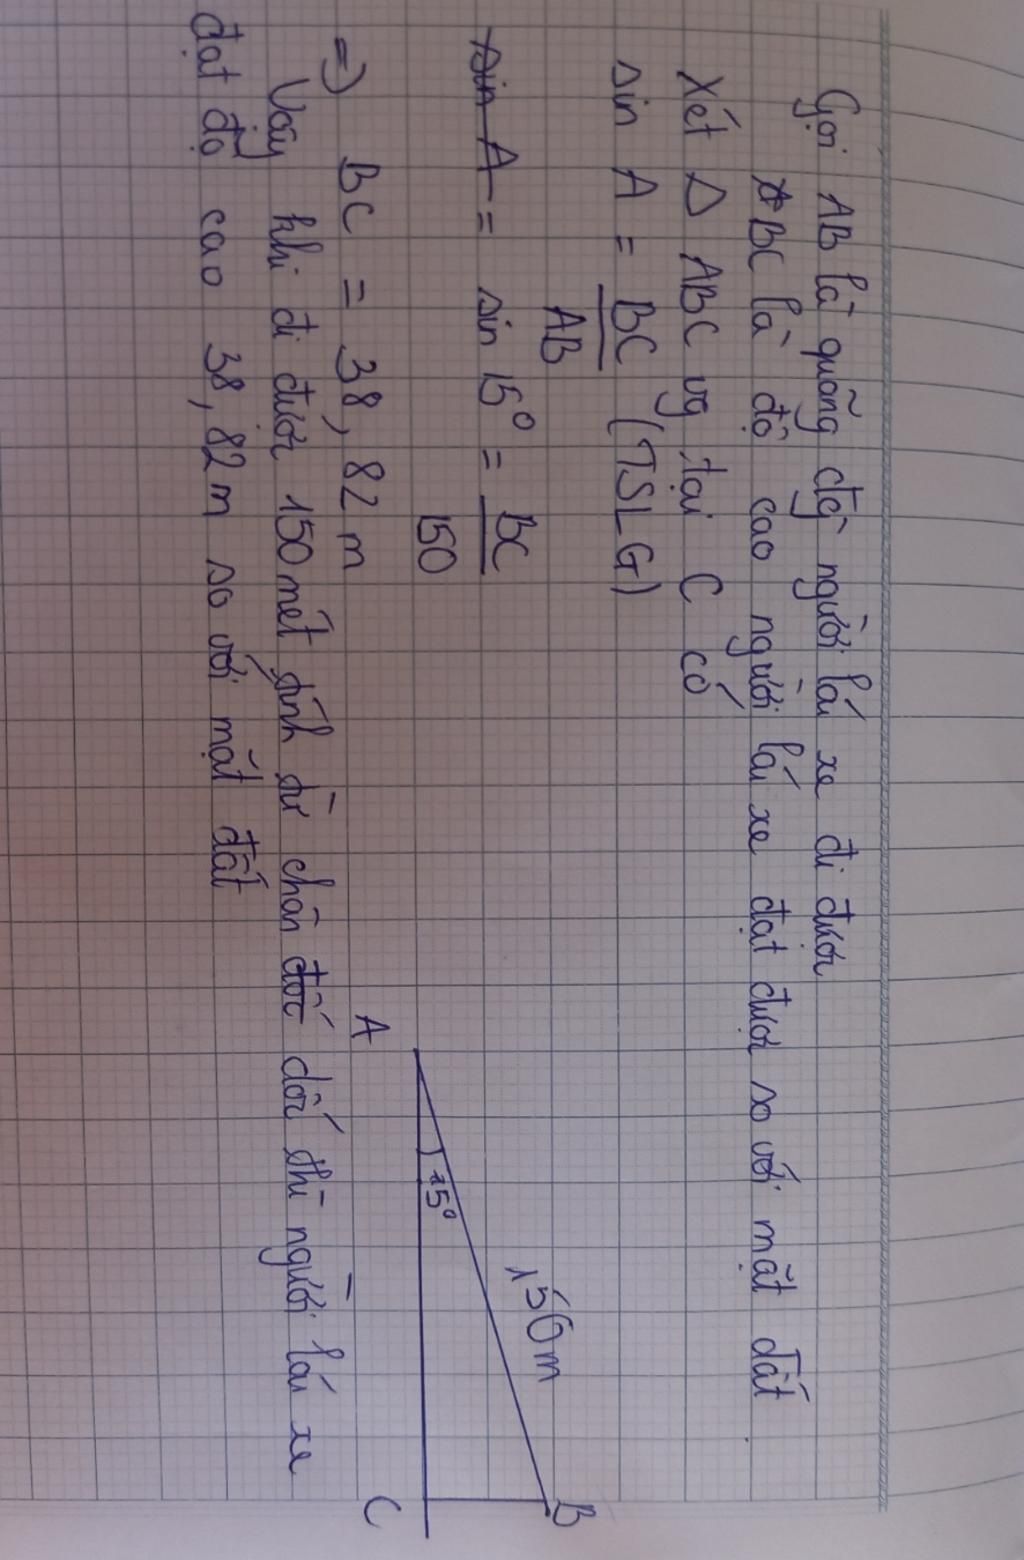 Gọi AB là quãng đg người lái xe đi được
BC là độ cao người lái xe đạt được so với mặt đất.
Xét Δ ABC vg tại C có
sin A = BC/AB (TSLG)
sin A = sin 15° = BC/150
=) BC = 38,82 m
Vậy khi đi được 150 mét tính từ chân đốc dốc thì người lái xe
đạt độ cao 38,82m so với mặt đất
A
15°
150m
B
C